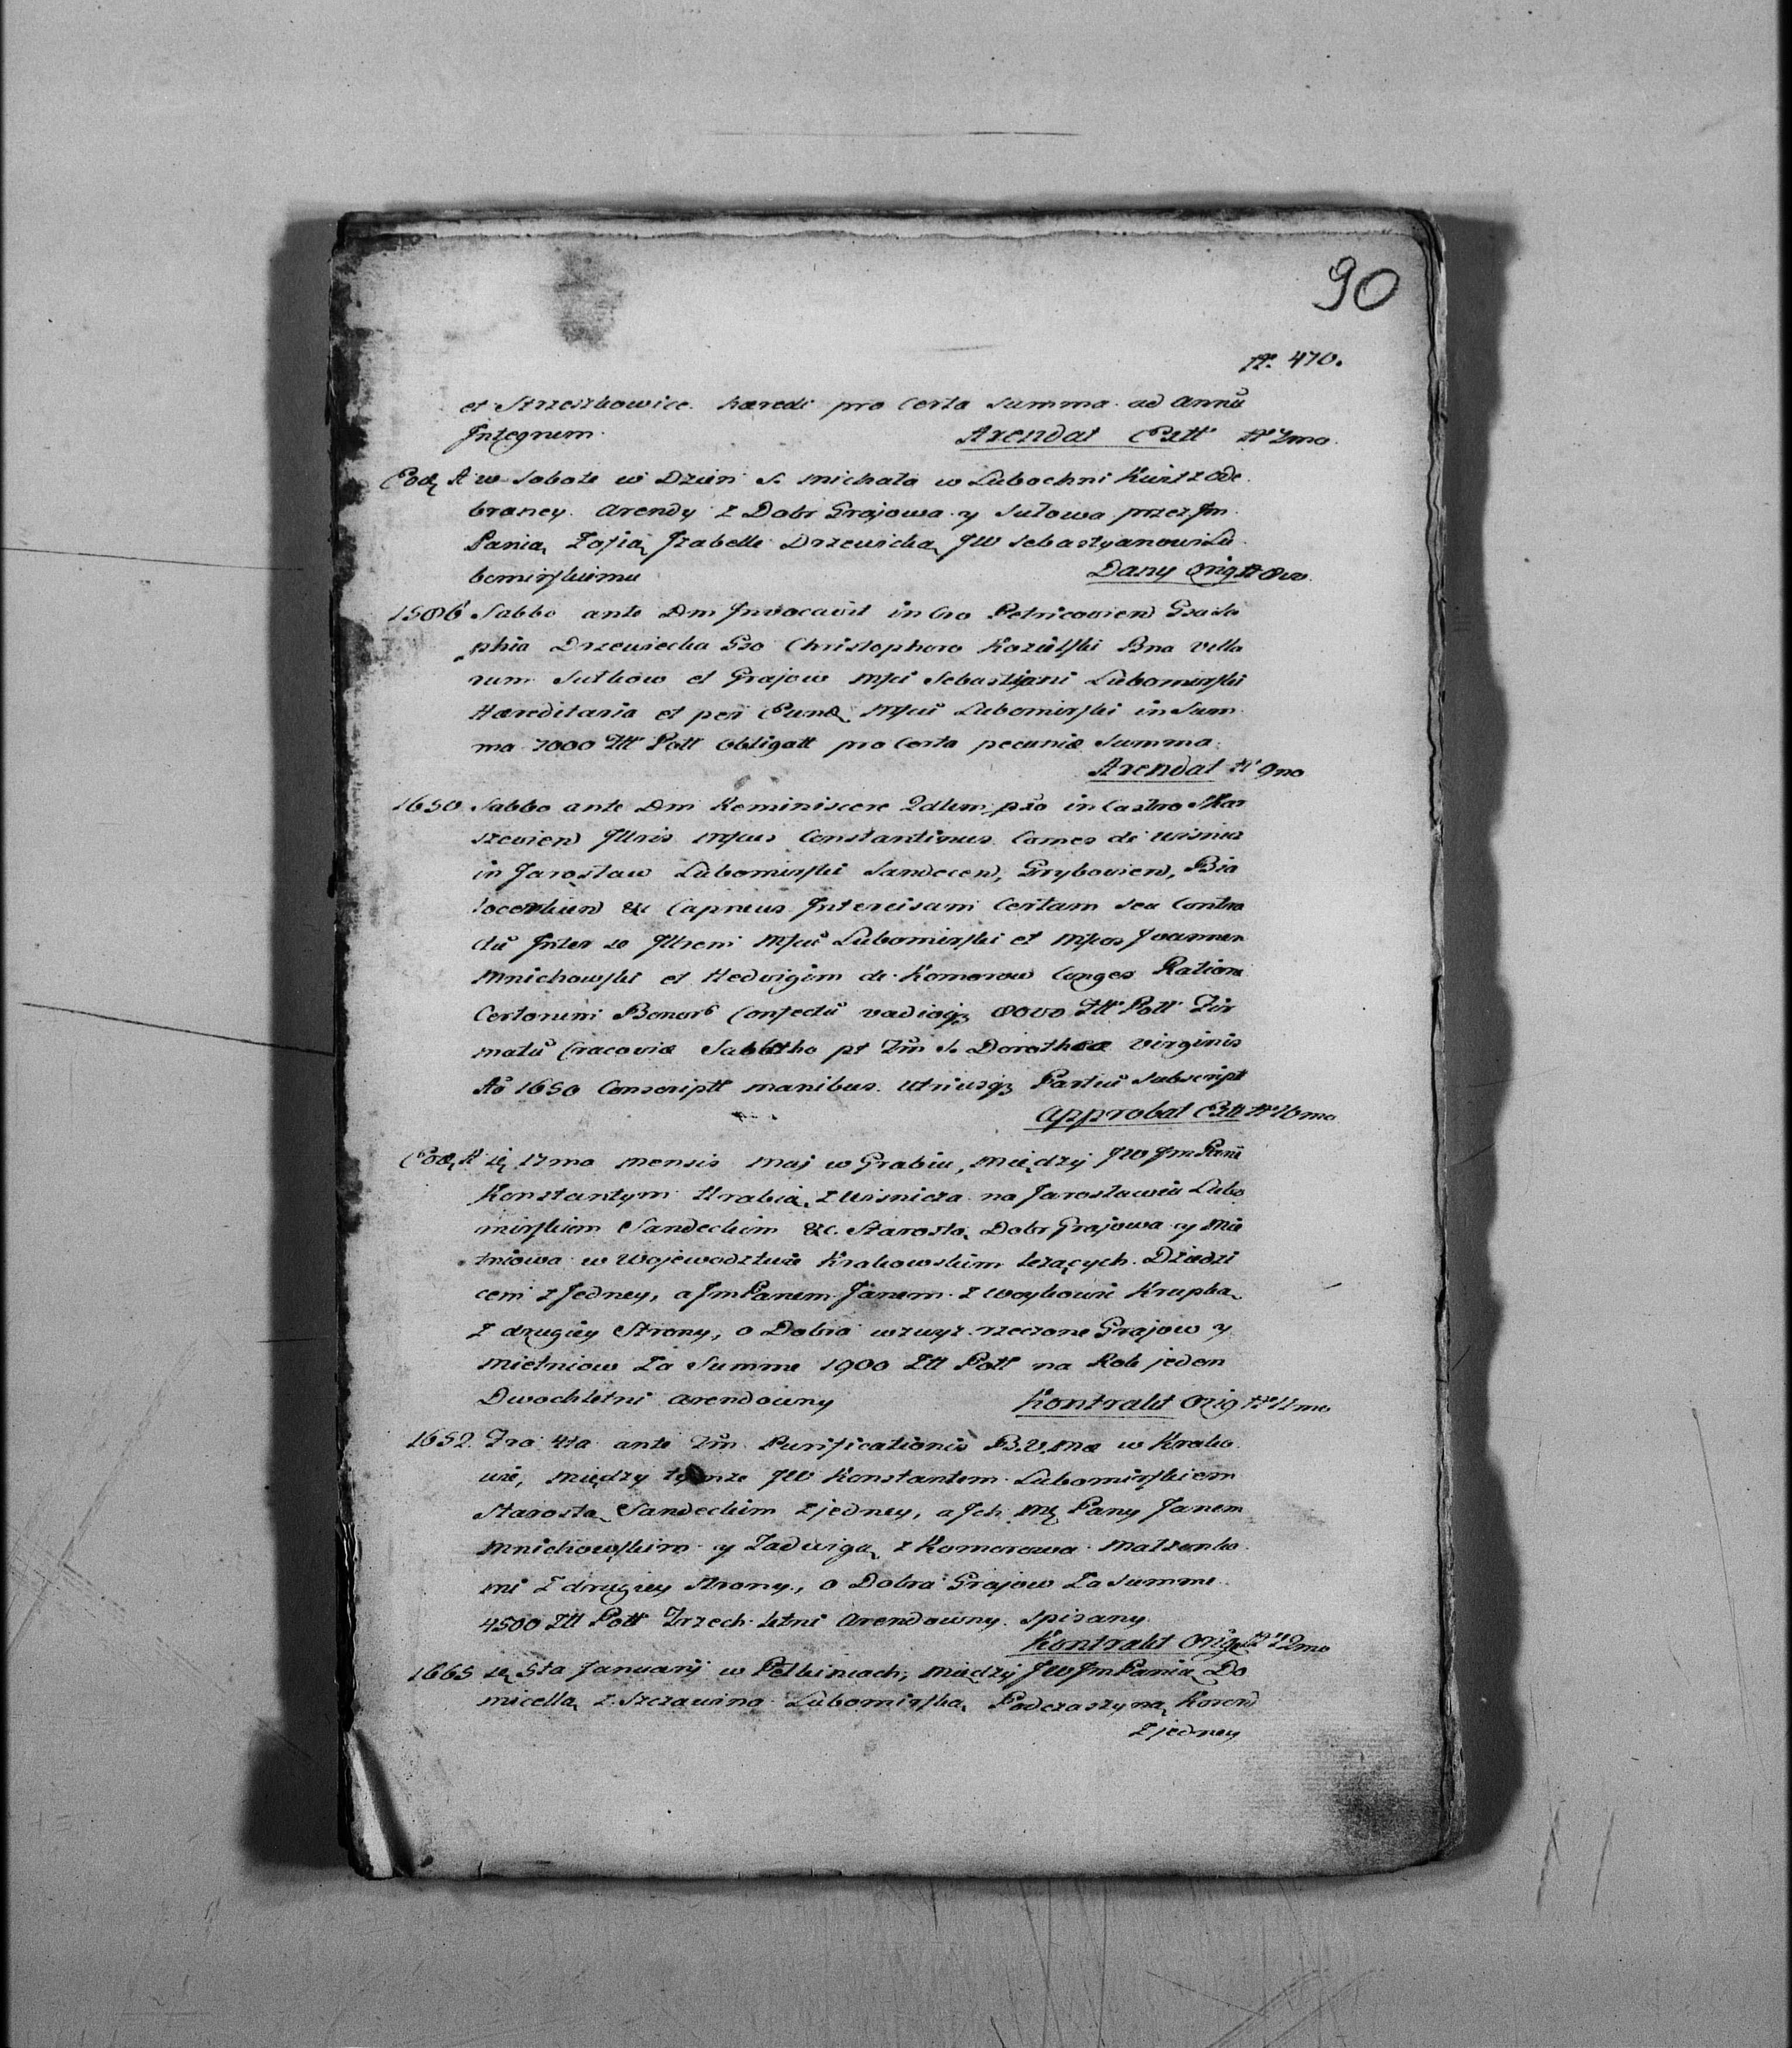 90
N° 470.
et Strzeszkowice hæredi pro Certa Summa ad Annū
Integrum. Arendat Extt N° 7mo.
Eodq A° w Sobote w Dzien S. Michała w Lubochni Kwit z Ode
braney Arendy z Dobr Grajowa y Sułowa przez Jm
Panią Zofią Izabelle Drzewicką JW Sebastyanowi Lu
bomirskiemu Dany Orig N° 8vo.
1586 Sabbo ante Dm Invocavit in Cro Petricovien Gsa So
phia Drzewiecka Gso Christophoro Kozulski Bna Villa
rum Sułkow et Grajow Mfci Sebastiani Lubomirski
Hæreditaria et per Eundq Mfcū Lubomirski in Sum
ma 7000 Złł Poll Obligatt pro Certa pecuniæ Summa.
Arendat N° 9no
1650 Sabbo ante Dm Reminiscere Qdlem pso in Castro Skar
szevien Illris Mfcus Constantinus Comes de Wisnicz
in Jarosław Lubomirski Sandecen, Grybovien, Bia
locerkien &c Capneus Intercisam Certam seu Contra
ctū Inter se Illrem Mfcū Lubomirski et Mfcos Joannem
Mnichowski et Hedvigim de Komorow Conges Ratione
Certorum Bonor Confectū vadioq 8000 Złł Poll Fir
matū Cracoviæ Sabbtho pt Fm S. Dorotheæ Virginis
A° 1650 Conscriptt manibus Utriusq Partiū Subscript
Approbat Extt N° 10mo
Eodq A° die 17ma mensis Maj w Grabiu, Między JW JmPanē
Konstantym Hrabią z Wisnicza na Jarosławiu Lubo
mirskiem Sandeckim &c. Starostą Dobr Grajowa y Mie
tniowa w Wojewodztwie Krakowskim leżących Dziedzi
cem z Jedney, a JmPanem Janem z Woykowic Krupką
z drugiey Strony, o Dobra wzwyz rzeczone Grajow y
Mietniow Za Summe 1900 Złł Poll na Rok jeden
Dwochletni Arendowny Kontrakt Orig N° 11mo
1652. Fra 4ta ante Fm Purificationis B.V.Mæ w Krako
wie, Między tymze JW Konstantem Lubomirskiem
Starostą Sandeckim z jedney, a Ich Mq Pany Janem
Mnichowskim y Jadwigą z Komorowa Małzonko
mi Z drugiey Strony, o Dobra Grajow Za Summe
4500 Złł Poll Trzech letni Arendowny Spisany.
Kontrakt Orig N° 12mo
1665 die 5ta Januarij w Pełkiniach, Między JW JmPanią Do
micellą z Szczawina Lubomirską Podczaszyną Koren
z jedney